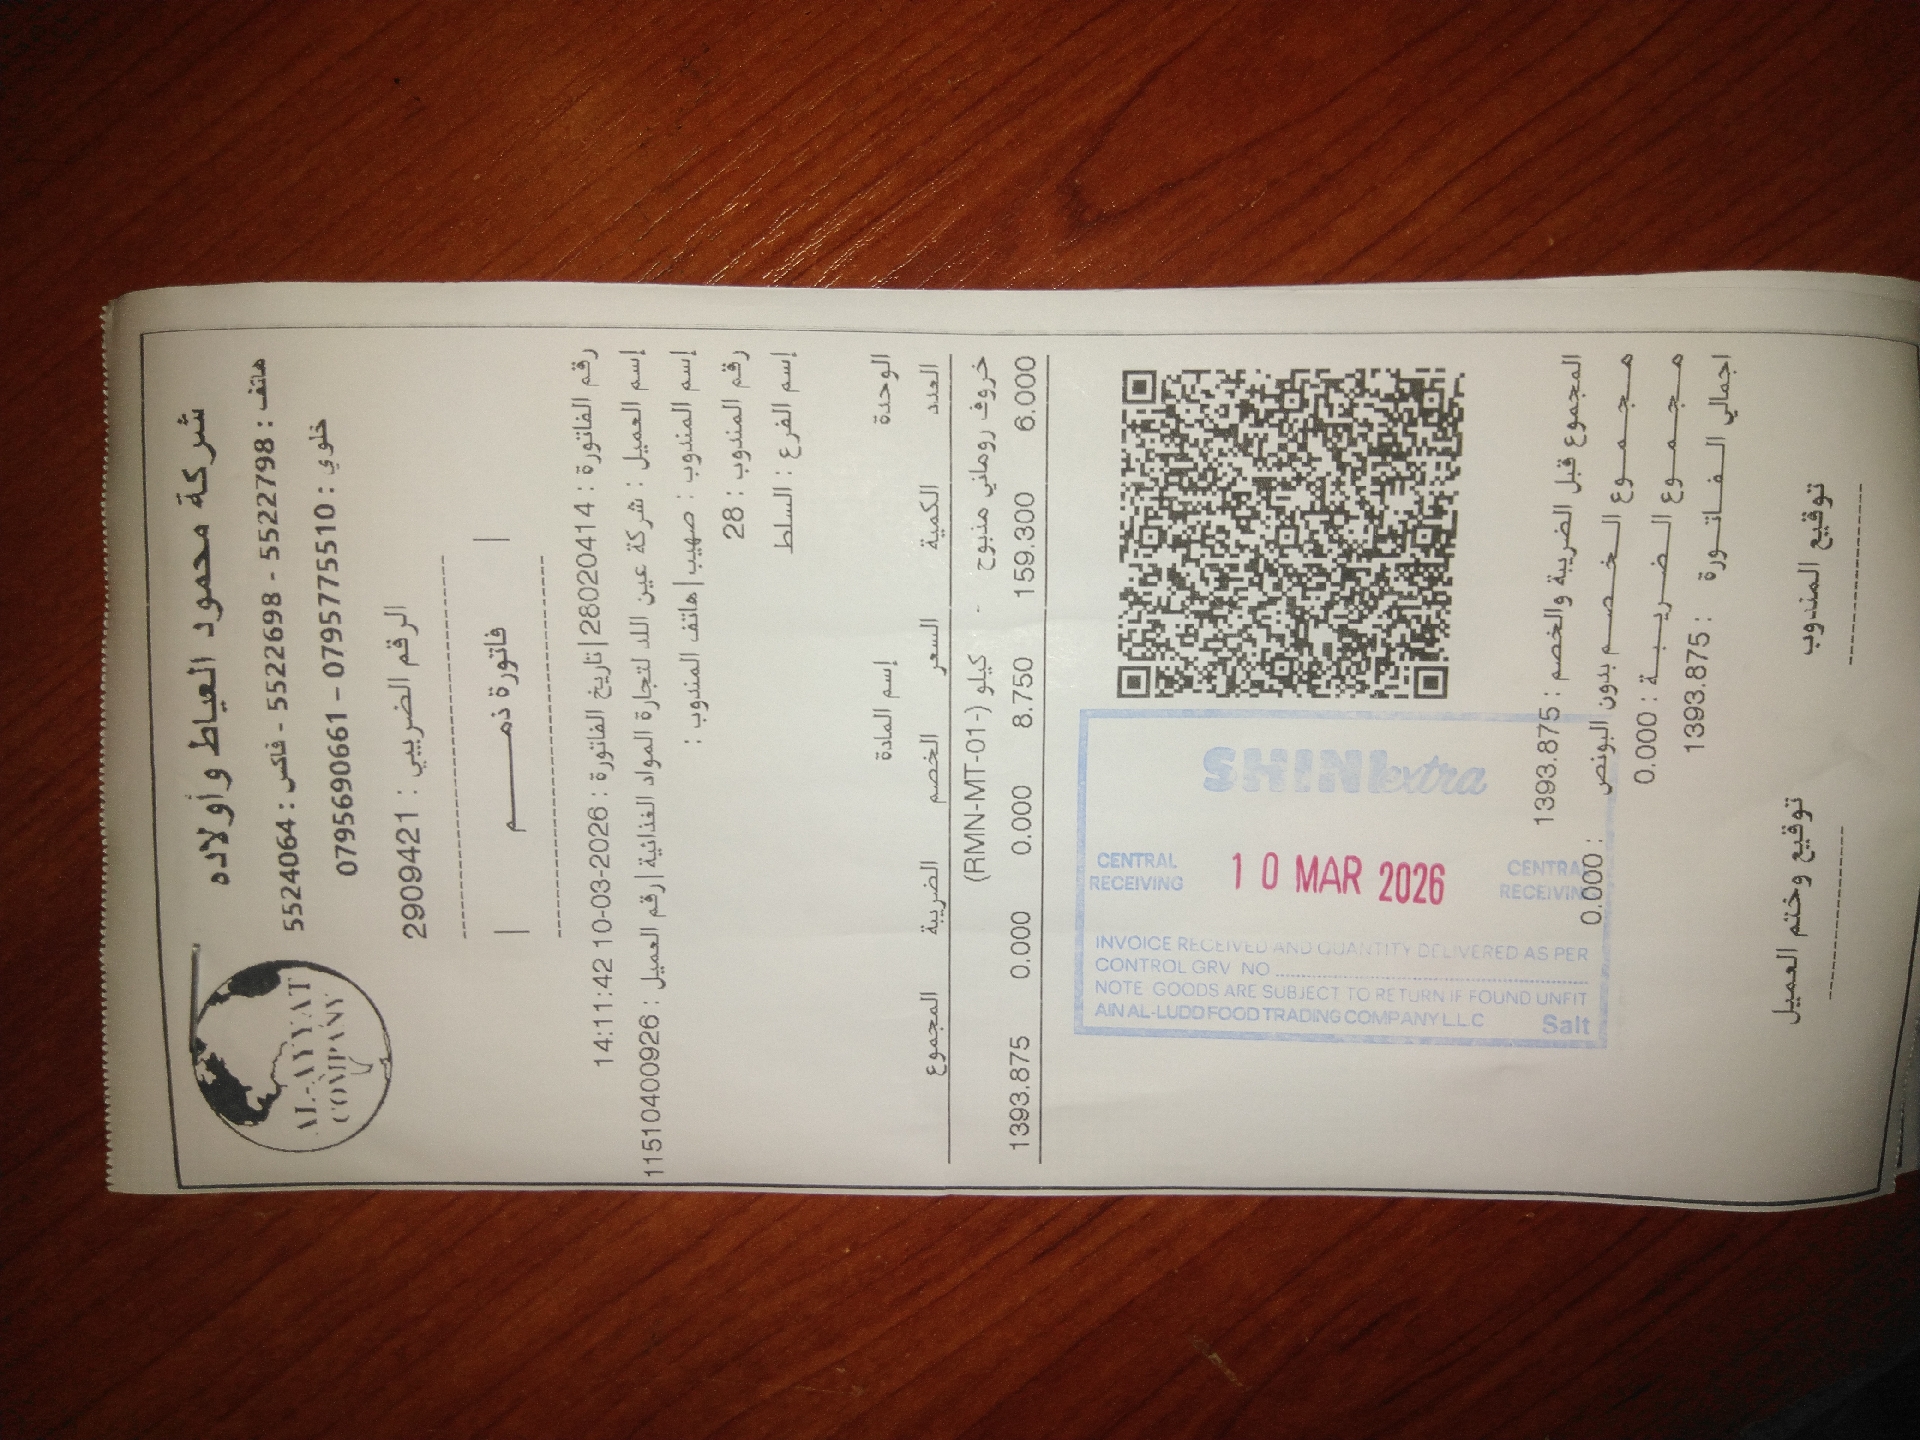 شركة محمود العياط وأولاده
هاتف : 5522798 - 5522698 - فاكس : 5524064
خلوي : 0795775510 – 0795690661
AL-AYYAT
COMPANY
الرقم الضريبي : 2909421
| فاتورة ذمـــــم |
رقم الفاتورة : 28020414|تاريخ الفاتورة : 2026-03-10 14:11:42
إسم العميل : شركة عين اللد لتجارة المواد الغذائية|رقم العميل : 11510400926
إسم المندوب : صهيب|هاتف المندوب :
رقم المندوب : 28
إسم الفرع : السلط
الوحدة إسم المادة
العدد الكمية السعر الخصم الضريبة المجموع
خروف روماني مذبوح - كيلو (-RMN-MT-01)
6.000 159.300 8.750 0.000 0.000 1393.875
SHINI extra
CENTRAL RECEIVING 10 MAR 2026 CENTRAL RECEIVING
INVOICE RECEIVED AND QUANTITY DELIVERED AS PER
CONTROL GRV NO
NOTE GOODS ARE SUBJECT TO RETURN IF FOUND UNFIT
AIN AL-LUDD FOOD TRADING COMPANY L.L.C Salt
المجموع قبل الضريبة والخصم : 1393.875
مـجـمـوع الـخـصـم بدون البونص : 0.000
مـجـمـوع الـضـريـبـة : 0.000
اجمالي الـفـاتـورة : 1393.875
توقيع المندوب توقيع وختم العميل